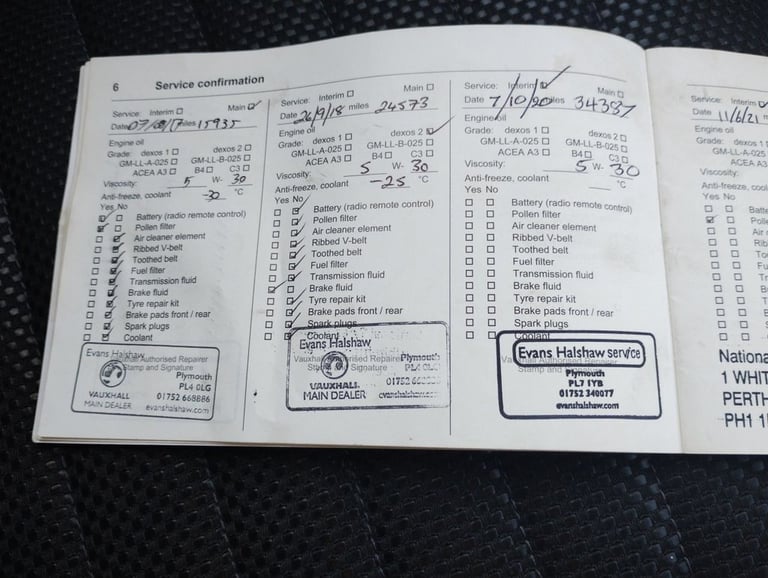 6 Service confirmation
Service: Interim ☐ Main ☑
Date miles 15935
Engine oil
Grade: dexos 1 ☐ dexos 2 ☐
GM-LL-A-025 ☐ GM-LL-B-025 ☐
ACEA A3 ☐ B4 ☐ C3 ☐
Viscosity: 5 W- 30
Anti-freeze, coolant -30 °C
Yes No
Battery (radio remote control)
Pollen filter
Air cleaner element
Ribbed V-belt
Toothed belt
Fuel filter
Transmission fluid
Brake fluid
Tyre repair kit
Brake pads front / rear
Spark plugs
Coolant
Evans Halshaw
Vauxhall Authorised Repairer
Stamp and Signature
Plymouth
PL4 0LG
VAUXHALL 01752 668886
MAIN DEALER evanshalshaw.com
Service: Interim ☐ Main ☐
Date 26/9/18 miles 24573
Engine oil
Grade: dexos 1 ☐ dexos 2 ☑
GM-LL-A-025 ☐ GM-LL-B-025 ☐
ACEA A3 ☐ B4 ☐ C3 ☐
Viscosity: 5 W- 30
Anti-freeze, coolant -25 °C
Yes No
Battery (radio remote control)
Pollen filter
Air cleaner element
Ribbed V-belt
Toothed belt
Fuel filter
Transmission fluid
Brake fluid
Tyre repair kit
Brake pads front / rear
Spark plugs
Coolant
Evans Halshaw
Vauxhall Authorised Repairer
Stamp and Signature
Plymouth
VAUXHALL 01752
MAIN DEALER evanshalshaw.com
Service: Interim ☑ Main ☐
Date 7/10/20 miles 34387
Engine oil
Grade: dexos 1 ☐ dexos 2 ☐
GM-LL-A-025 ☐ GM-LL-B-025 ☐
ACEA A3 ☐ B4 ☐ C3 ☐
Viscosity: 5 W- 30
Anti-freeze, coolant °C
Yes No
Battery (radio remote control)
Pollen filter
Air cleaner element
Ribbed V-belt
Toothed belt
Fuel filter
Transmission fluid
Brake fluid
Tyre repair kit
Brake pads front / rear
Spark plugs
Coolant
Evans Halshaw service
Vauxhall Authorised Repairer
Stamp and Signature
Plymouth
PL7 1YB
01752 340077
evanshalshaw.com
Service: Interim ☑
Date 11/6/21 m
Engine oil
Grade: dexos 1
GM-LL-A-025
ACEA A3
Viscosity:
Anti-freeze, coolan
Yes No
Batte
Polle
Air c
Ribb
Too
Fu
Tra
B
Nationa
1 WHIT
PERTH
PH1 1